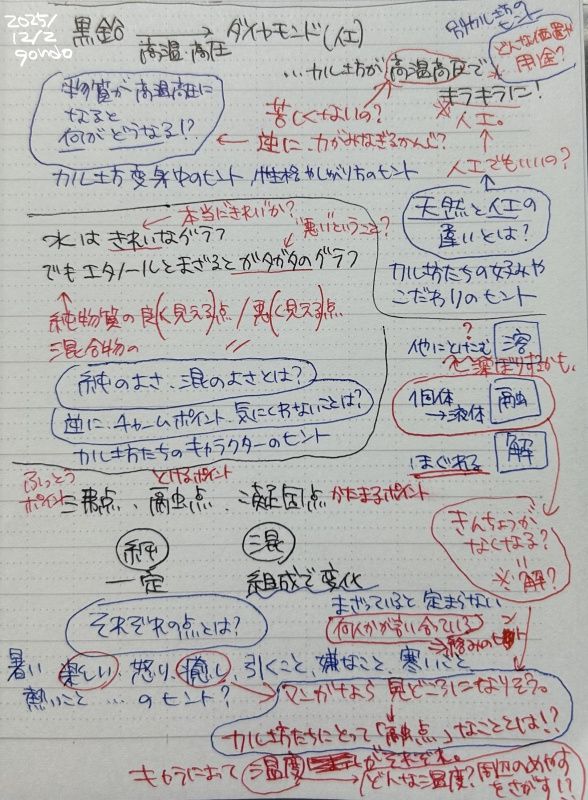 2025/
12/2
gondo
黒鉛 → ダイヤモンド(人工)
高温・高圧
…カル坊が高温高圧で
キラキラに!
別カル坊のヒント
どんな価値や
用途?
※人工。
人工でもいいの?
天然と人工の
違いとは?
カル坊たちの好みや
こだわりのヒント
物質が高温高圧に
なると
何がどうなる!?
苦しくないの?
逆に、力がみなぎるかんじ?
カル坊変身中のヒント,性格やしがり方のヒント
本当にきれいか?
水はきれいなグラフ
"悪い"ということ?
でもエタノールとまざるとガタガタのグラフ
純物質の良く(見える)点/悪く(見える)点
混合物の 〃
純のよさ、混のよさとは?
逆に、チャームポイント、気にくわないことは?
カル坊たちのキャラクターのヒント
他にとけこむ? 溶
で薬ぽりするかも。
個体
→液体 融
ほぐれる 解
きんちょうが
なくなる?
※解?
ふっとう
ポイント
とけるポイント
沸点、融点、凝固点 かたまるポイント
純 混
一定 組成で変化
まざっていると定まらない
何人かが言い合っている
→絡みのヒント
それぞれの点とは?
暑い 楽しい、怒り、癒し、引くこと、嫌なこと、寒いこと
熱いこと …のヒント?
マンガなら見どころになりそう。
カル坊たちにとって「融点」なこととは!?
キャラによって温度がそれぞれ。
→どんな温度?周囲のめやす
をさがす!?